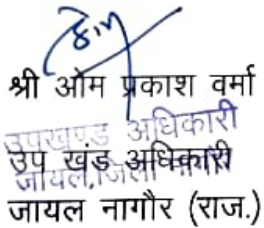 श्री ओम प्रकाश वर्मा
उपखण्ड अधिकारी
उप खंड अधिकारी
जायल, जिला
जायल नागौर (राज.)